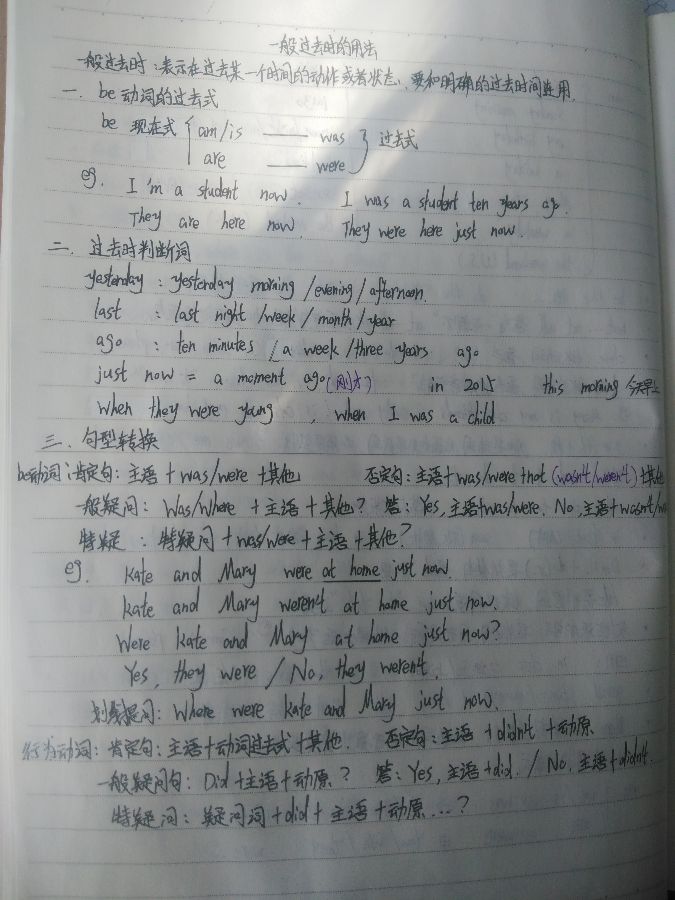 一般过去时的用法
一般过去时：表示在过去某一个时间的动作或者状态，要和明确的过去时间连用.
一. be 动词的过去式
be 现在式 { am/is —— was } 过去式
are —— were
eg. I'm a student now. I was a student ten years ago.
They are here now. They were here just now.
二. 过去时判断词
yesterday : yesterday morning /evening / afternoon.
last : last night /week / month / year
ago : ten minutes / a week /three years ago
just now = a moment ago (刚才) in 2015 this morning 今天早上
when they were young , when I was a child
三. 句型转换
be动词：肯定句: 主语 + was/were + 其他 否定句: 主语 + was/were + not (wasn't/weren't) + 其他
一般疑问: Was/Where + 主语 + 其他? 答: Yes, 主语+was/were. No, 主语+wasn't/
特疑 : 特疑问 + was/were + 主语 + 其他?
eg. Kate and Mary were at home just now.
Kate and Mary weren't at home just now.
Were Kate and Mary at home just now?
Yes, they were / No, they weren't.
划线提问: Where were Kate and Mary just now.
行为动词: 肯定句: 主语+动词过去式+其他. 否定句: 主语 + didn't + 动原
一般疑问句: Did + 主语 + 动原? 答: Yes, 主语 + did. / No, 主语 + didn't.
特疑问: 疑问词 + did + 主语 + 动原...?